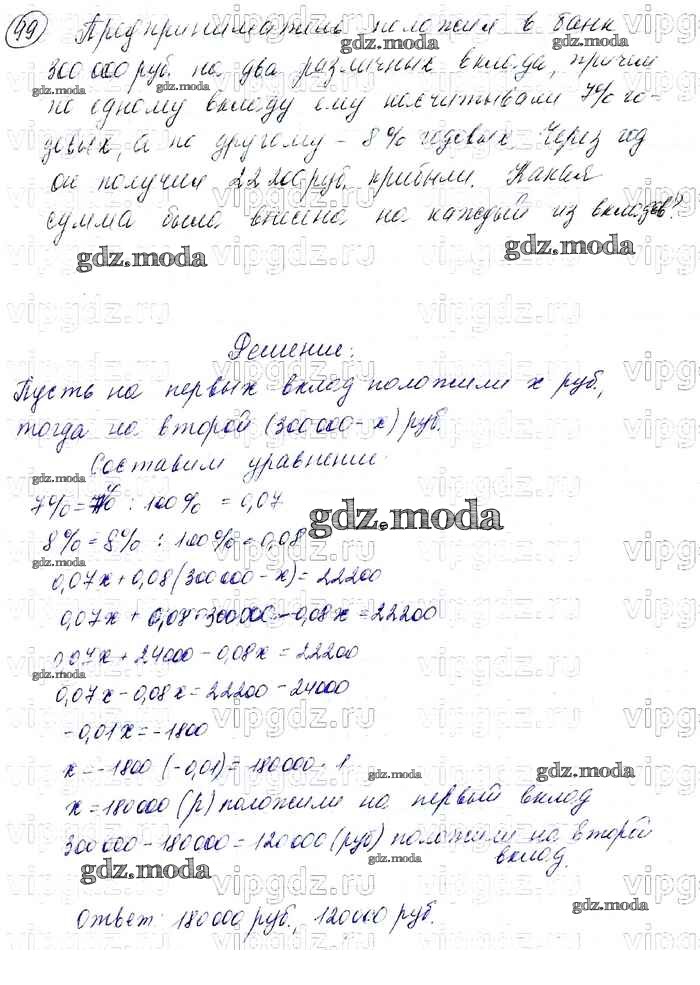 99 Предприниматель положил в банк
300 000 руб. на два различных вклада, причём
по одному вкладу ему насчитывали 7% го-
довых, а по другому - 8% годовых. Через год
он получил 22200 руб. прибыли. Какая
сумма была внесена на каждый из вкладов?
Решение:
Пусть на первых вклад положили x руб,
тогда на второй (300000 - x) руб.
Составим уравнение
7% = : 100% = 0,07
8% = 8% : 100% = 0,08
0,07x + 0,08(300000 - x) = 22200
0,07x + 0,08·300000 - 0,08x = 22200
0,07x + 24000 - 0,08x = 22200
0,07x - 0,08x = 22200 - 24000
-0,01x = -1800
x = -1800 (-0,01) = 180000 · 1
x = 180000 (р) положили на первый вклад
300000 - 180000 = 120000 (руб) положили на второй
вклад.
Ответ: 180000 руб., 120000 руб.
gdz.moda
vipgdz.ru